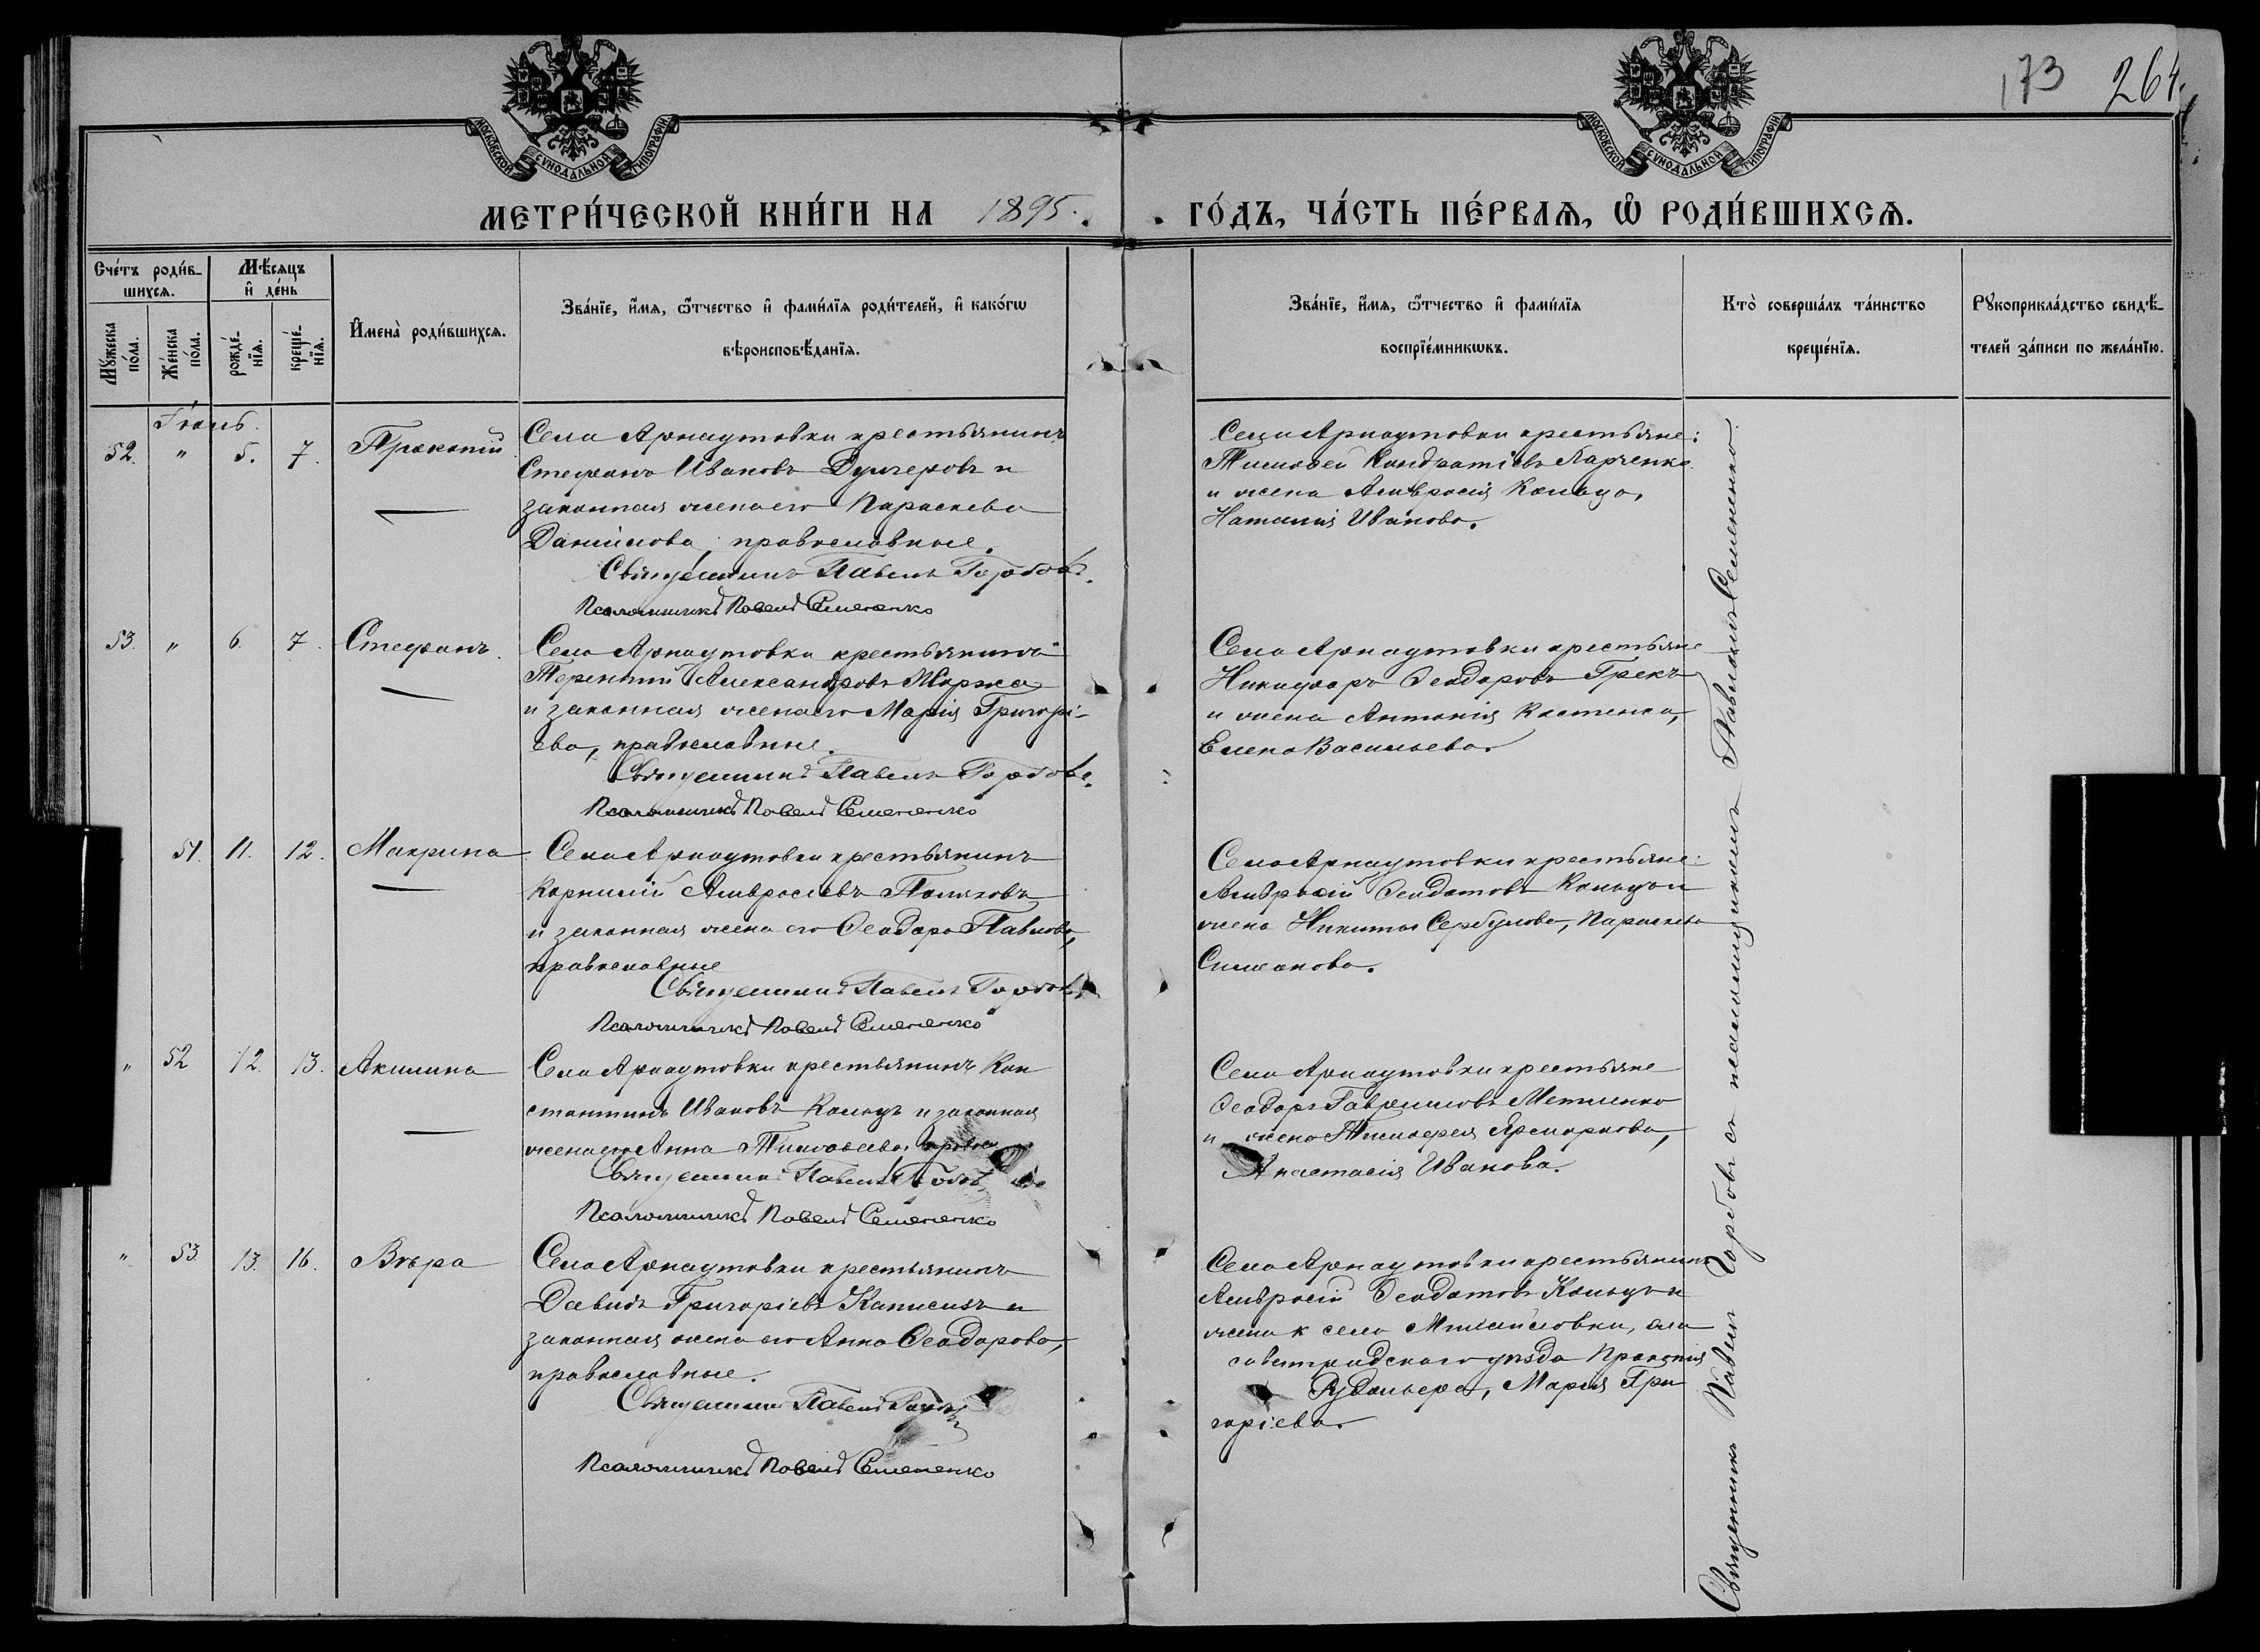 173 264.
МОСКОВСКОЙ СѴНОДАЛЬНОЙ ТИПОГРАФІИ
МОСКОВСКОЙ СѴНОДАЛЬНОЙ ТИПОГРАФІИ
МЕТРИ́ЧЕСКОЙ КНИ́ГИ НА 1895.
ГО́ДЪ, ЧА́СТЬ ПЕ́РВАѦ, Ѽ РОДИ́ВШИХСѦ.
Сче́тъ роди́в-
шихсѧ.
Мѣ́сѧцъ
и҆ де́нь
Мꙋ́жеска
по́ла.
Же́нска
по́ла.
рожде́-
нїѧ.
креще́-
нїѧ.
И҆мена̀ роди́вшихсѧ.
Зва́нїе, и҆́мѧ, ѻ҆́тчество и҆ фами́лїѧ роди́телей, и҆ како́гѡ
вѣроисповѣ́данїѧ.
Зва́нїе, и҆́мѧ, ѻ҆́тчество и҆ фами́лїѧ
воспрїе́мникѡвъ.
Кто̀ соверша́лъ та́инство
креще́нїѧ.
Рꙋкоприкла́дство свидѣ́-
телей за́писи по жела́нїю.
Іюль.
52. " 5. 7. Прокопій
Села Арнаутовки крестьянинъ
Стефанъ Ивановъ Дулгеровъ и
законная жена его Параскева
Даніилова, православные.
Священникъ Павелъ Горбовъ.
Псаломщикъ Павелъ Семененко
Села Арнаутовки крестьяне:
Тимофей Кондратіевъ Харченко
и жена Амвросія Кольца,
Наталія Иванова.
53. " 6. 7. Стефанъ.
Села Арнаутовки крестьянинъ
Терентій Александровъ Моржа
и законная жена его Марія Григорі-
ева, православные.
Священникъ Павелъ Горбовъ.
Псаломщикъ Павелъ Семененко
Села Арнаутовки крестьяне
Никифоръ Феодоровъ Грекъ
и жена Антонія Костенка,
Елена Васильева.
51. 11. 12. Макрина
Села Арнаутовки крестьянинъ
Корнилій Амвросіевъ Поляковъ
и законная жена его Феодора Павлова,
православные
Священникъ Павелъ Горбовъ.
Псаломщикъ Павелъ Семененко
Села Арнаутовки крестьяне:
Амвросій Феодотовъ Кольцъ и
жена Никиты Сербулова, Параскева
Симеонова.
" 52 12. 13. Акилина
Села Арнаутовки крестьянинъ Кон
стантинъ Ивановъ Кольцъ и законная
жена его Анна Тимофеева,
Священникъ Павелъ Горбовъ
Псаломщикъ Павелъ Семененко
Села Арнаутовки крестьяне
Феодоръ Гавриловъ Метленко
и жена Тимофея Ярмаркова,
Анастасія Иванова.
" 53. 13. 16. Вѣра
Села Арнаутовки крестьянинъ
Давидъ Григоріевъ и
законная жена его Анна Феодорова,
православные.
Священникъ Павелъ Горбовъ
Псаломщикъ Павелъ Семененко
Села Арнаутовки крестьянинъ
Амвросій Феодотовъ Кольцъ и
жена к села Михайловки, ели
саветградскаго уѣзда Прокопія
Рудольера, Марія Гри
горіева.
Священникъ Павелъ Горбовъ съ псаломщикомъ Павломъ Семененко.